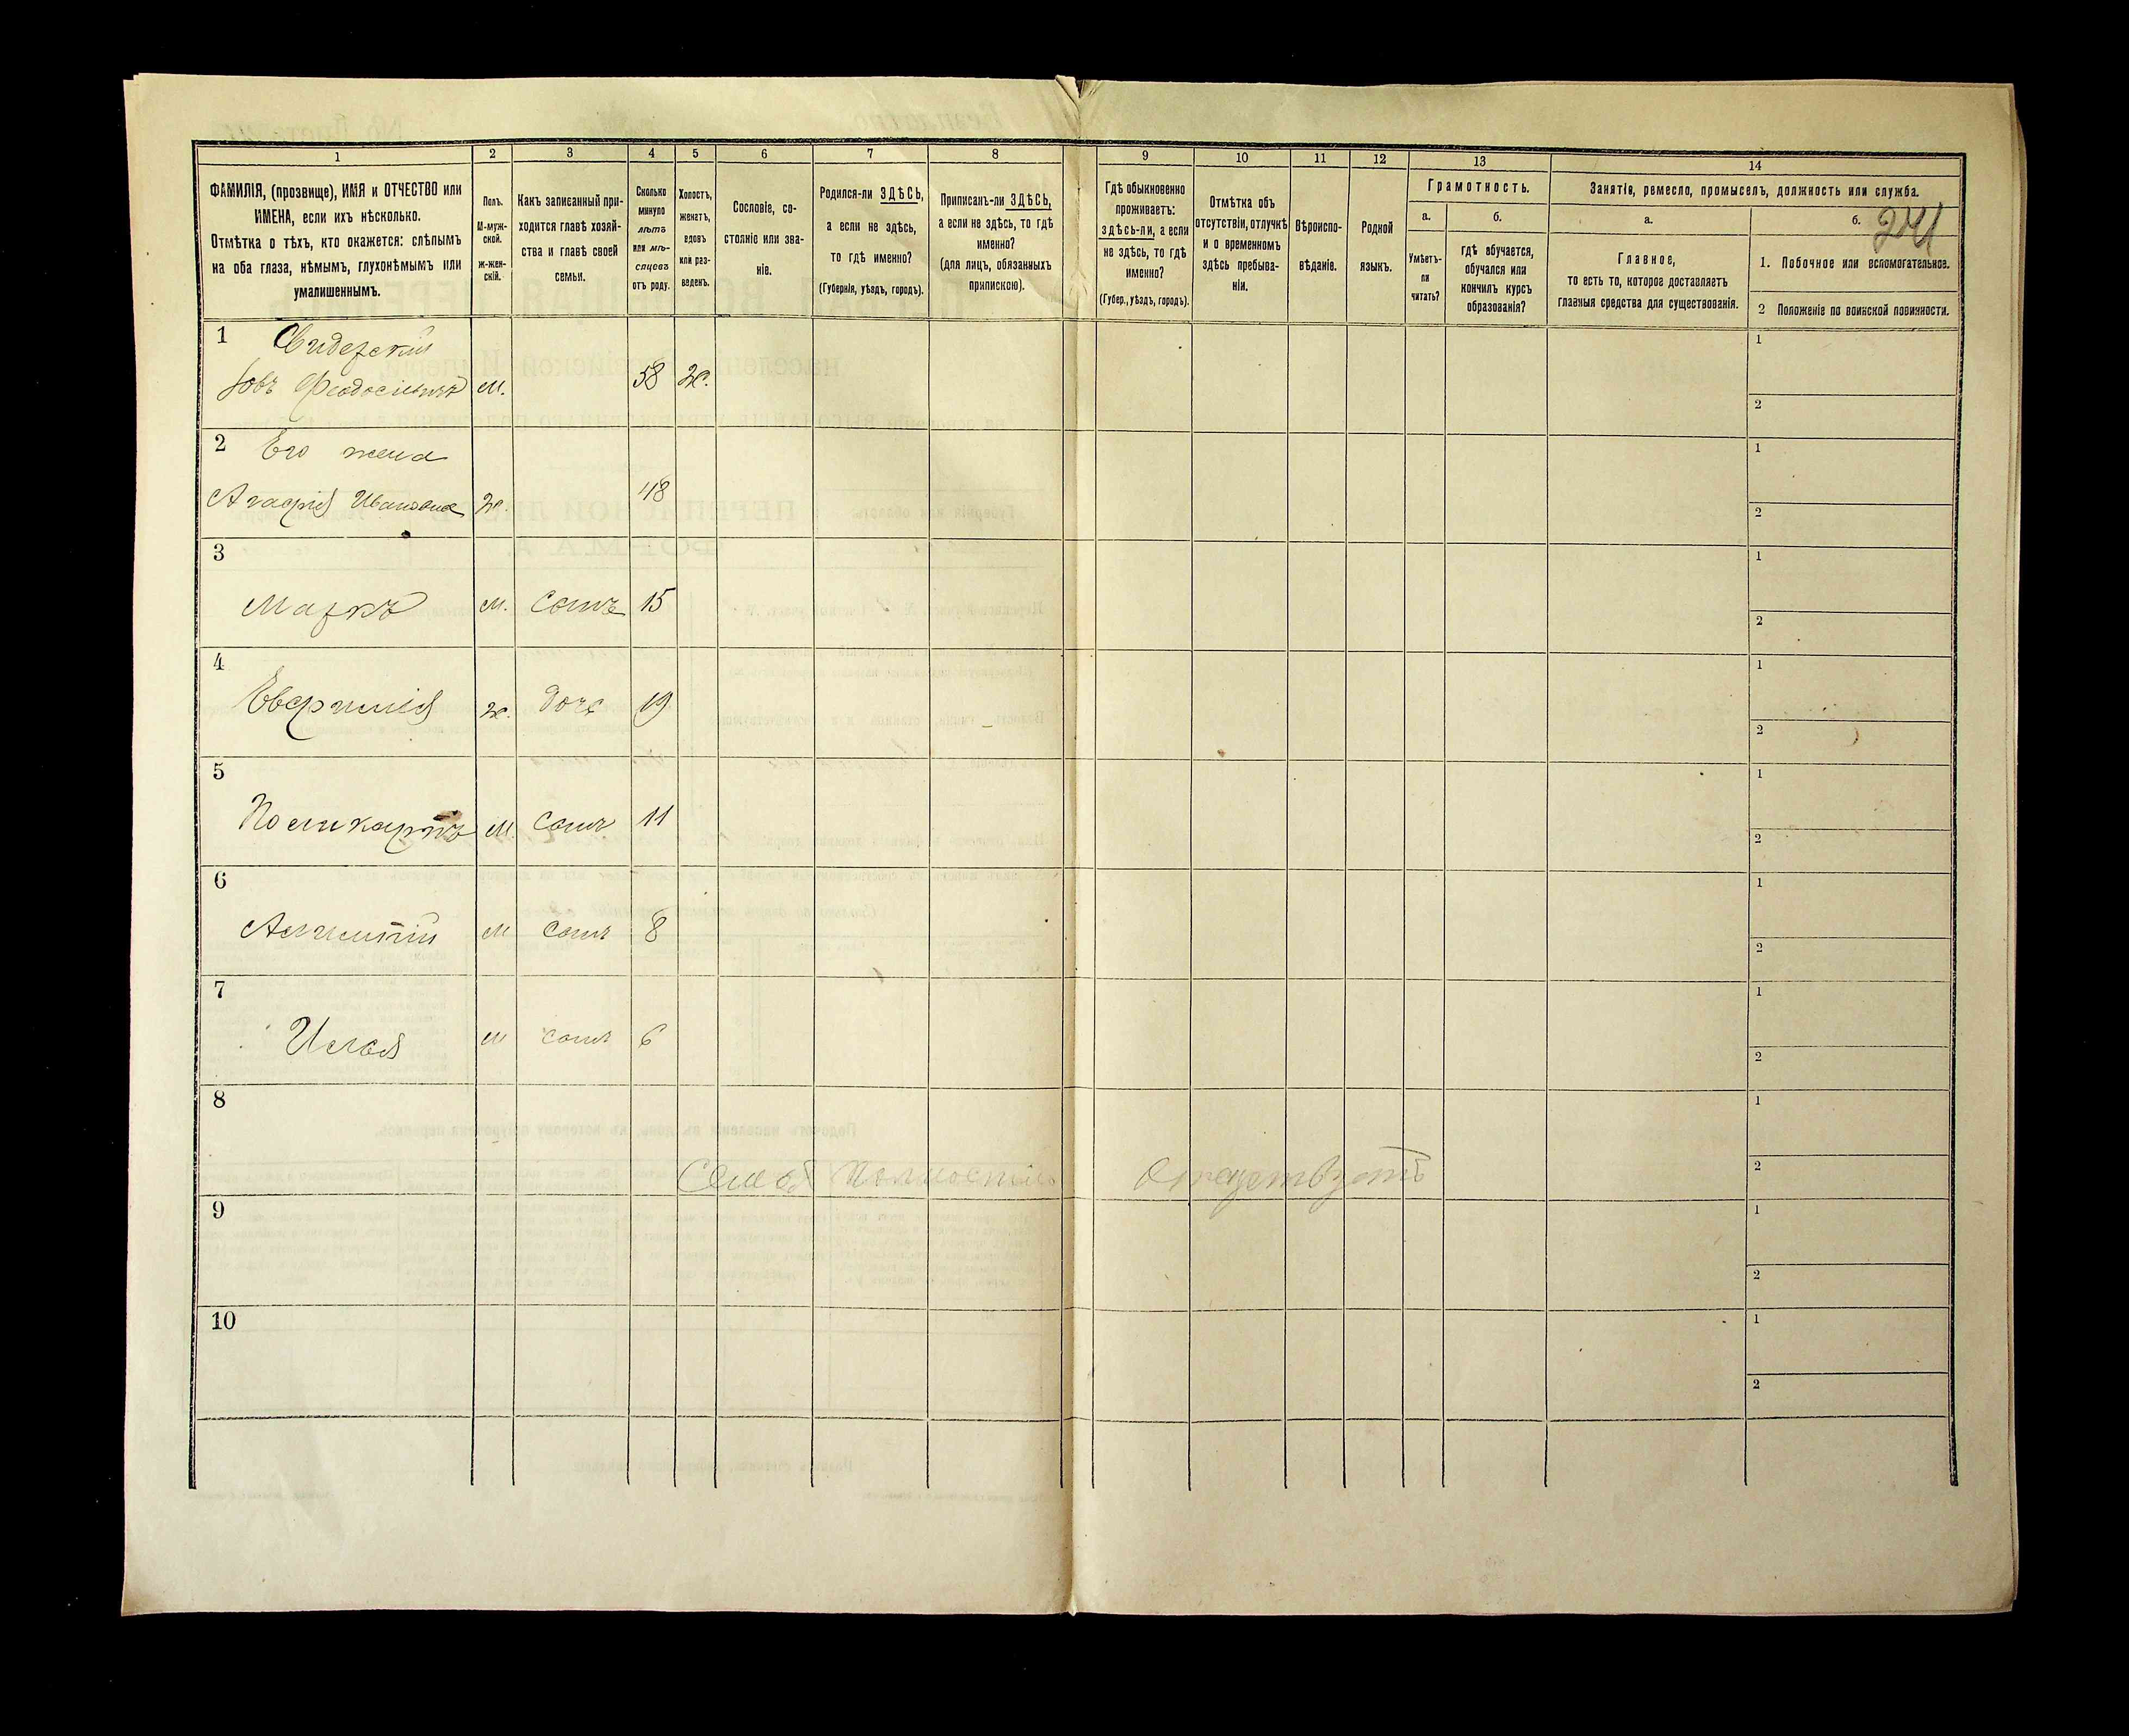 241
1 2 3 4 5 6 7 8 9 10 11 12 13 14
ФАМИЛІЯ, (прозвище), ИМЯ и ОТЧЕСТВО или
ИМЕНА, если ихъ нѣсколько.
Отмѣтка о тѣхъ, кто окажется: слѣпымъ
на оба глаза, нѣмымъ, глухонѣмымъ или
умалишеннымъ.
Полъ.
М-муж-
ской.
ж-жен-
скій.
Какъ записанный при-
ходится главѣ хозяй-
ства и главѣ своей
семьи.
Сколько
минуло
лѣтъ
или мѣ-
сяцевъ
отъ роду.
Холостъ,
женатъ,
вдовъ
или раз-
веденъ.
Сословіе, со-
стояніе или зва-
ніе.
Родился-ли ЗДѢСЬ,
а если не здѣсь,
то гдѣ именно?
(Губернія, уѣздъ, городъ).
Приписанъ-ли ЗДѢСЬ,
а если не здѣсь, то гдѣ
именно?
(для лицъ, обязанныхъ
припискою).
Гдѣ обыкновенно
проживаетъ:
здѣсь-ли, а если
не здѣсь, то гдѣ
именно?
(Губер., уѣздъ, городъ).
Отмѣтка объ
отсутствіи, отлучкѣ
и о временномъ
здѣсь пребыва-
ніи.
Вѣроиспо-
вѣданіе.
Родной
языкъ.
Грамотность.
а. б.
Умѣетъ-
ли
читать?
гдѣ обучается,
обучался или
кончилъ курсъ
образованія?
Занятіе, ремесло, промыселъ, должность или служба.
а. б.
Главное,
то есть то, которое доставляетъ
главныя средства для существованія.
1. Побочное или вспомогательное.
2 Положеніе по воинской повинности.
1 Свидерскій 1
Іовъ Феодосіевичъ м. 58 ж. 2
2 Его жена 1
Агафія Ивановна ж. 48 2
3 1
Маркъ м. сынъ 15 2
4 1
Евфимія ж. дочь 19 2
5 1
Поликарпъ м. сынъ 11 2
6 1
м сынъ 8 2
7 1
Илья м сынъ 6 2
8 1
Семья полностію отсутствуетъ 2
9 1
2
10 1
2